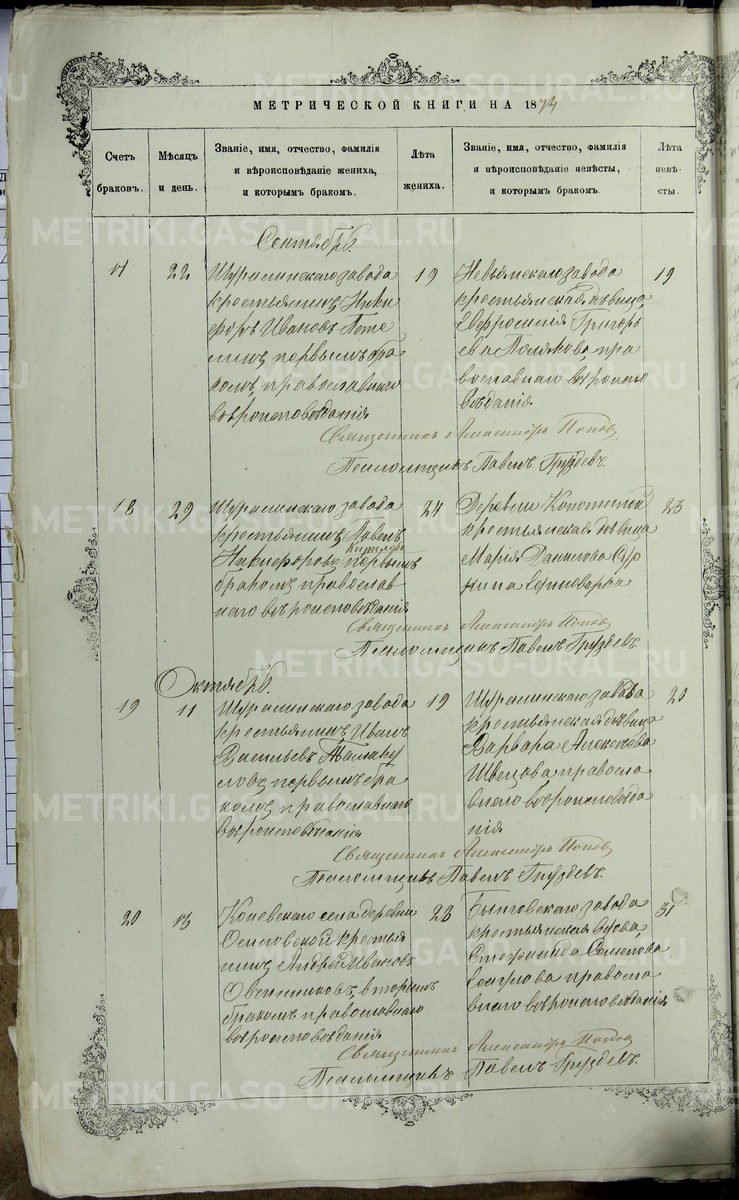 МЕТРИЧЕСКОЙ КНИГИ НА 1874
Счетъ браковъ.
Мѣсяцъ и день.
Званіе, имя, отчество, фамилія и вѣроисповѣданіе жениха, и которымъ бракомъ.
Лѣта жениха.
Званіе, имя, отчество, фамилія и вѣроисповѣданіе невѣсты, и которымъ бракомъ.
Лѣта невѣсты.
Сентябрь
17 22
Шуралинскаго завода
крестьянинъ Ники
форъ Ивановъ
первымъ бра
комъ, православнаго
вѣроисповѣданія
19
Невьянскаго завода
крестьянская дѣвица
Евфросинія Григорь
ева Полякова, пра
вославнаго вѣроиспо
вѣданія
19
Священникъ Александръ Поповъ
Псаломщикъ Павелъ Груздевъ.
18 29
Шуралинскаго завода
крестьянинъ Павелъ
Никифоровъ первымъ
бракомъ православ
наго вѣроисповѣданія
24
Деревни
крестьянская дѣвица
Марія Данилова
единовѣрка
23
Священникъ Александръ Поповъ
Псаломщикъ Павелъ Груздевъ.
Октябрь
19 11
Шуралинскаго завода
крестьянинъ Иванъ
Васильевъ
первымъ бра
комъ, православнаго
вѣроисповѣданія
19
Шуралинскаго завода
крестьянская дѣвица
Варвара Алексѣева
Швецова правосла
внаго вѣроисповѣда
нія
20
Священникъ Александръ Поповъ
Псаломщикъ Павелъ Груздевъ.
20 13
Коневскаго села деревни
Осиповской крестья
нинъ Андрей Ивановъ
Овчинниковъ, вторымъ
бракомъ православнаго
вѣроисповѣданія
23
Быньговскаго завода
крестьянская вдова
Стефанида Семенова
правосла
внаго вѣроисповѣданія
31
Священникъ Александръ Поповъ
Псаломщикъ Павелъ Груздевъ.
METRIKI.GASO-URAL.RU